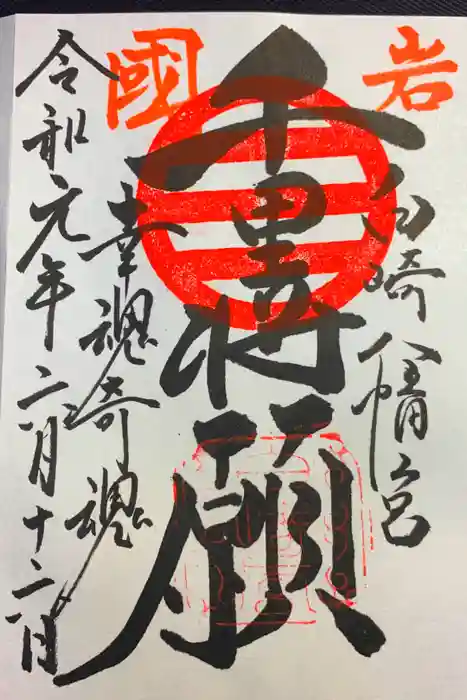 岩國
白崎八幡宮
千里将願
幸魂奇魂
令和元年六月十二日